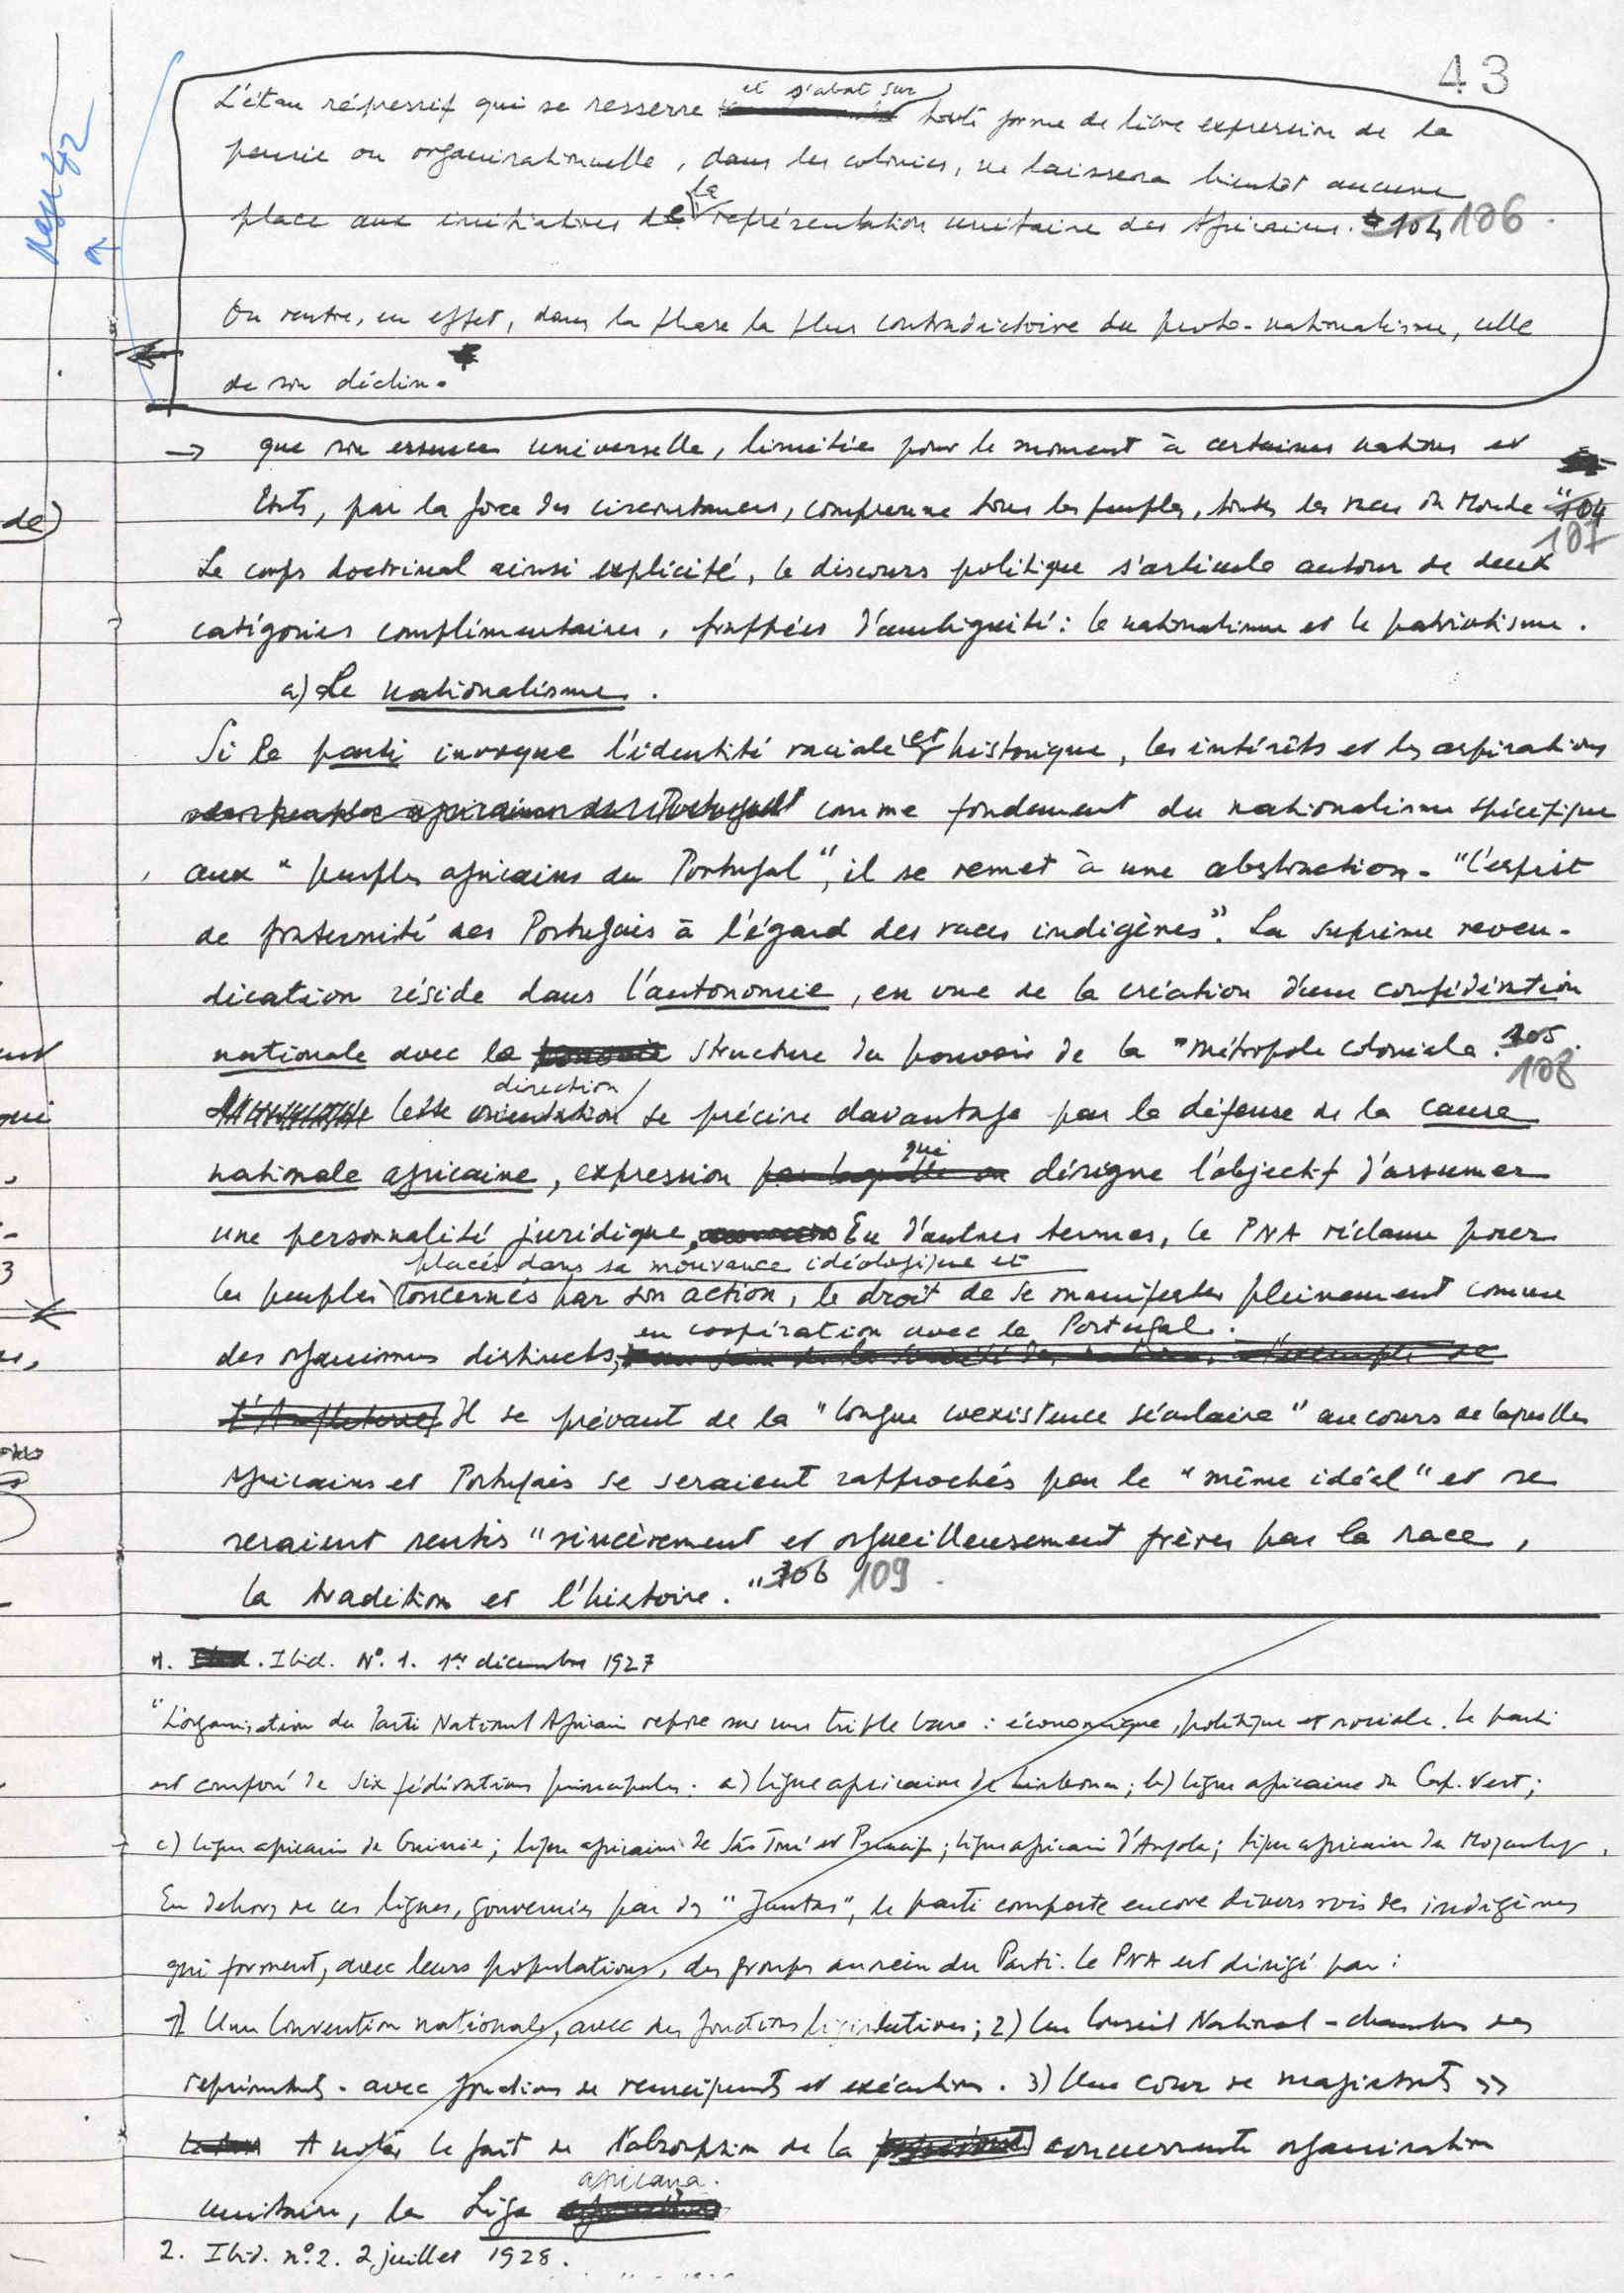 43
L'étau répressif qui se resserre et s'abat sur toute forme de libre expression de la
pensée ou organisationnelle, dans les colonies, ne laissera bientôt aucune
place aux initiatives de la représentation unitaire des Africains. 104 106
On rentre, en effet, dans la phase la plus contradictoire du proto-nationalisme, celle
de son déclin.
→ que son essence universelle, limitée pour le moment à certaines nations et
Etats, par la force des circonstances, comprenne tous les peuples, toutes les races du Monde" 104
107
Le corps doctrinal ainsi explicité, le discours politique s'articule autour de deux
catégories complémentaires, frappées d'ambiguité: le nationalisme et le patriotisme.
a) Le nationalisme.
Si le parti invoque l'identité raciale et historique, les intérêts et les aspirations
comme fondement du nationalisme spécifique
aux "peuples africains du Portugal", il se remet à une abstraction - "l'esprit
de fraternité des Portugais à l'égard des races indigènes". La suprême reven-
dication réside dans l'autonomie, en vue de la création d'une confédération
nationale avec la structure du pouvoir de la "métropole coloniale. 105.
108
direction
Cette orientation se précise davantage par la défense de la cause
nationale africaine, expression par laquelle on qui désigne l'objectif d'assumer
une personnalité juridique. En d'autres termes, le PNA réclame pour
placés dans sa mouvance idéologique et
les peuples concernés par son action, le droit de se manifester pleinement comme
en coopération avec le Portugal.
des organismes distincts, au sein de la Société des nations, à l'exemple de
l'Angleterre. Il se prévaut de la "longue coexistence séculaire" au cours de laquelle
Africains et Portugais se seraient rapprochés par le "même idéal" et se
seraient sentis "sincèrement et orgueilleusement frères par la race,
la tradition et l'histoire." 106 109
1. Ibid. N°. 1. 1er décembre 1927
"L'organisation du Parti National Africain repose sur une triple base : économique, politique et sociale. Le parti
est composé de six fédérations principales: a) ligue africaine de Lisbonne; b) ligue africaine du Cap. Vert;
c) ligue africaine de Guinée; ligue africaine de São Tomé et Principe; ligue africaine d'Angola; ligue africaine du Mozambique.
En dehors de ces ligues, gouvernées par des "Juntas", le parti comporte encore divers rois des indigènes
qui forment, avec leurs populations, des groupes au sein du Parti. Le PNA est dirigé par :
1) Une Convention nationale, avec des fonctions législatives; 2) Un Conseil National - chambre des
représentants - avec fonctions de et exécutives. 3) Une cour de magistrats >>
A noter le fait de l'absorption de la concurrente organisation
africana.
unitaire, la Liga
2. Ibid. n°. 2. 2 juillet 1928.